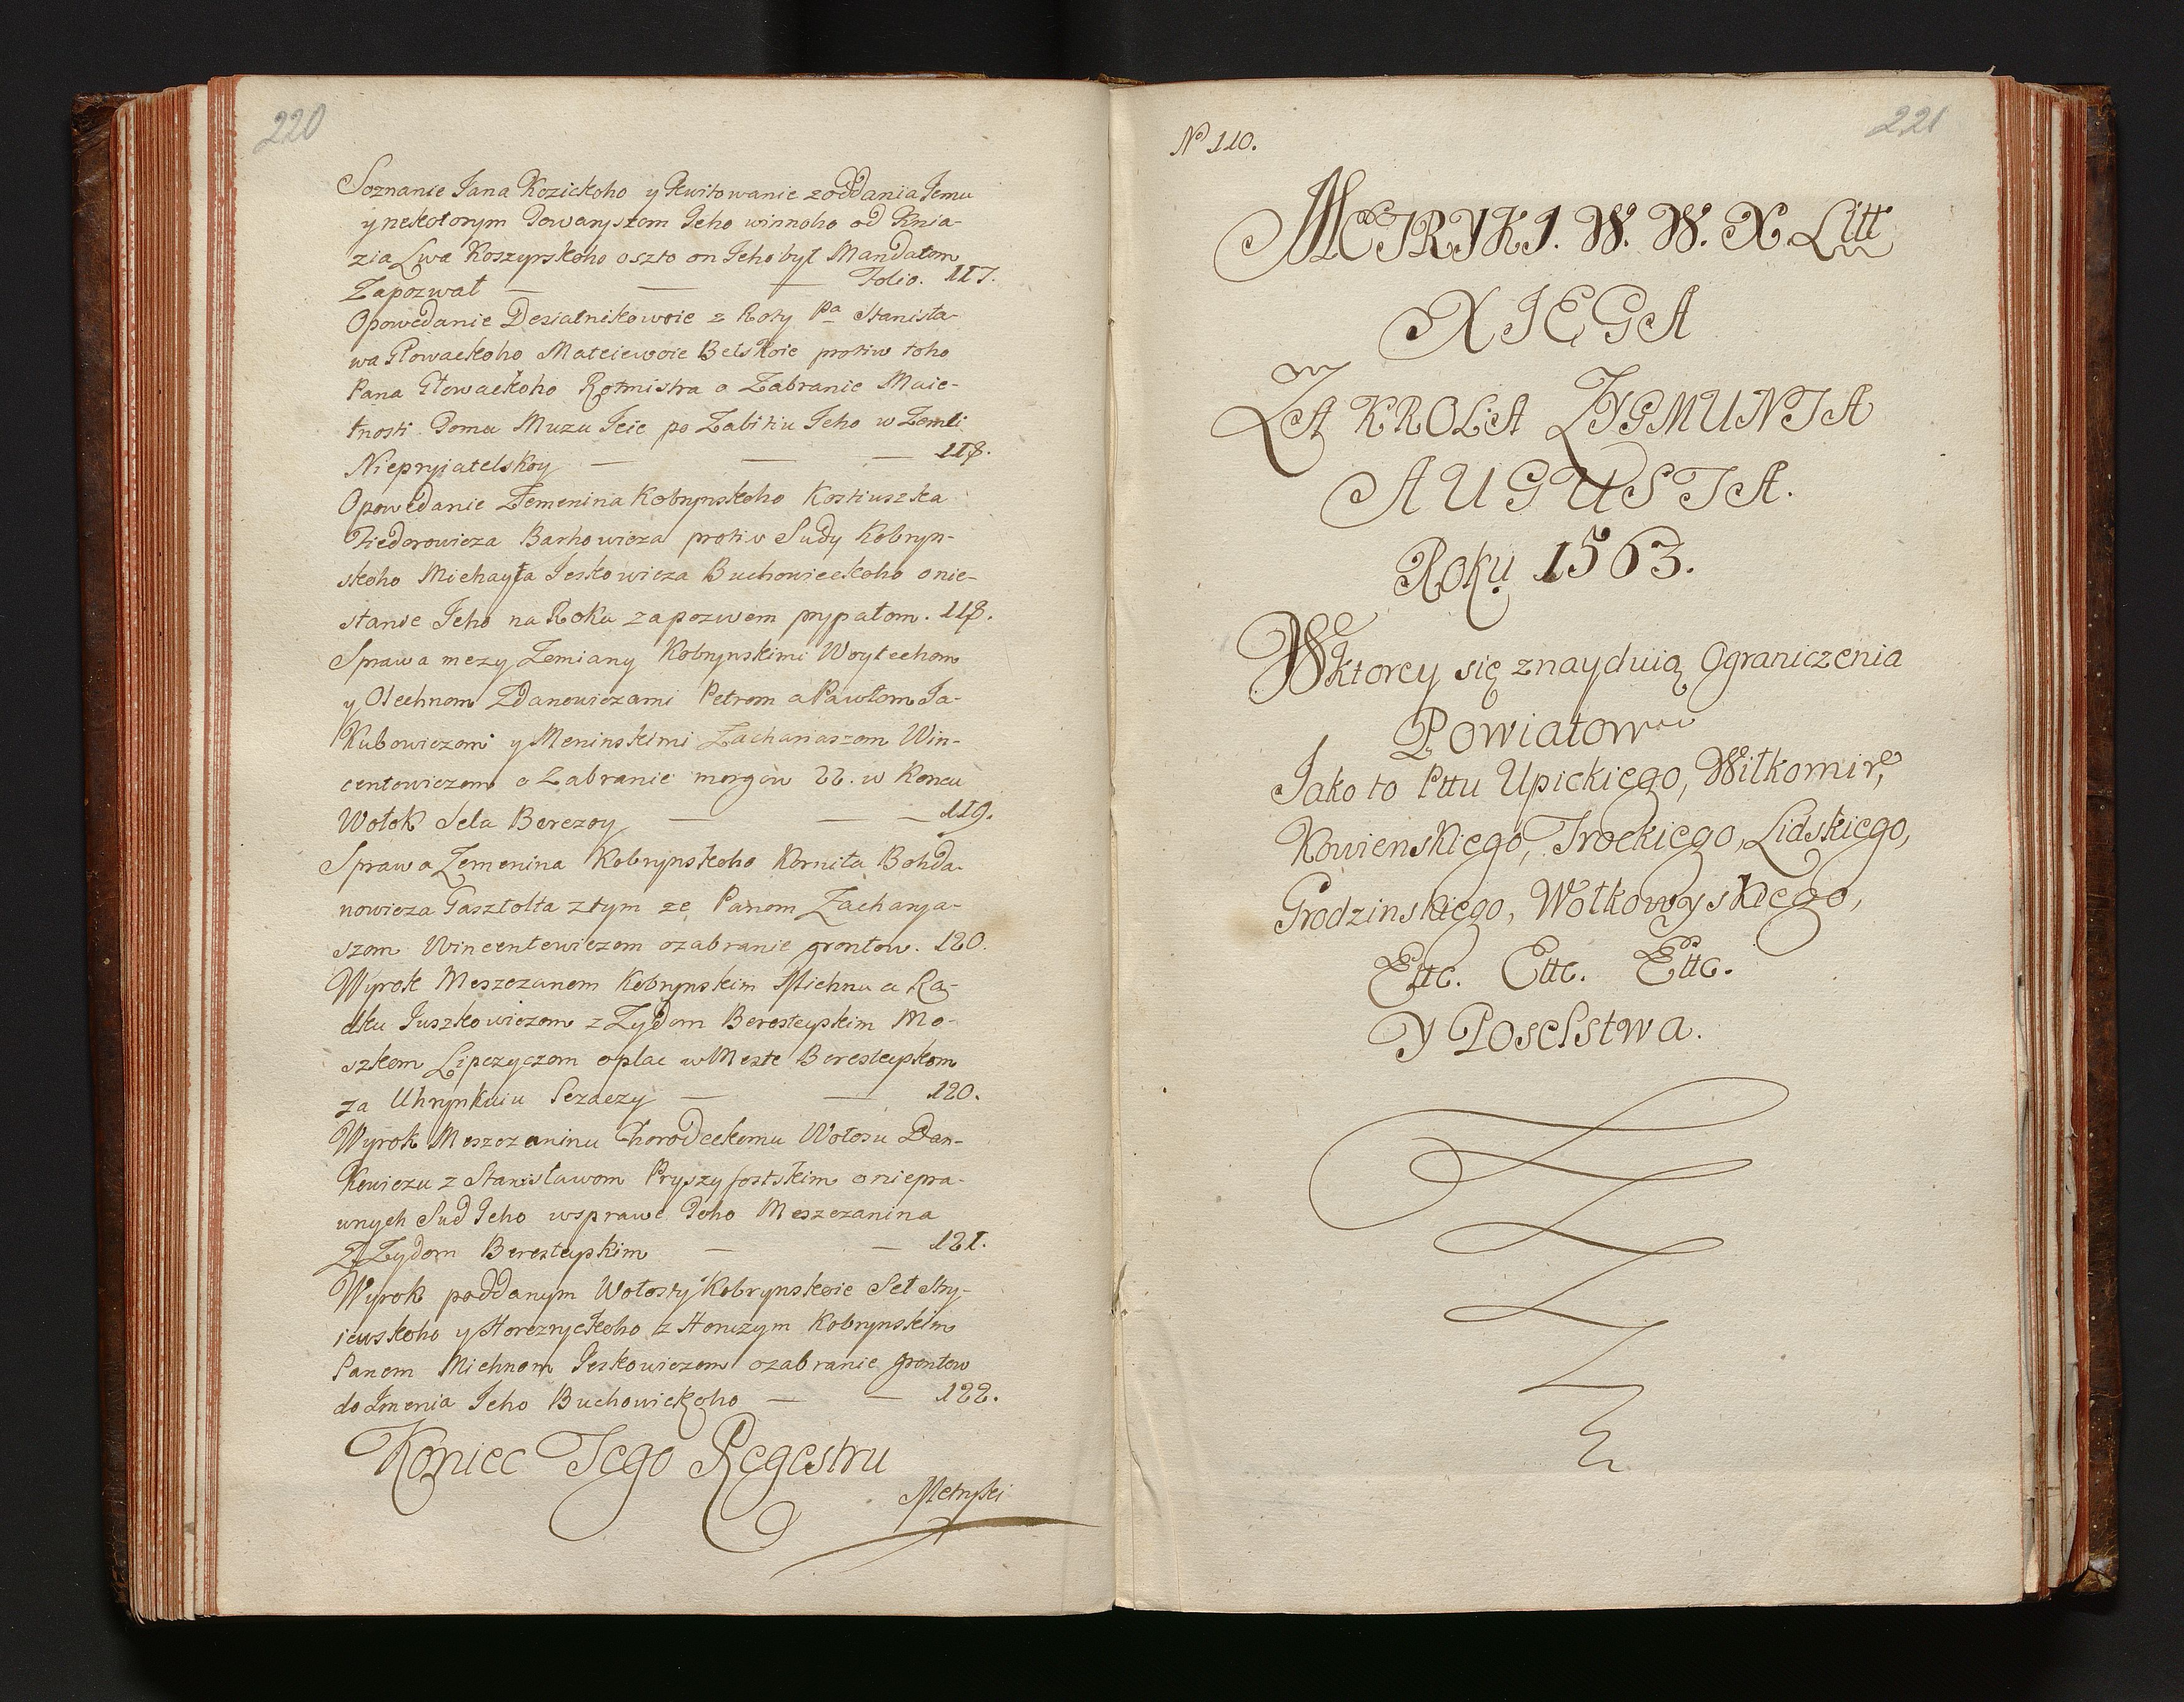 220
Soznanie Jana Kozickoho y Kwitowanie z oddania Jemu
y nekotorym Towaryszom Jeho winnoho od Knia-
zia Lwa Koszyrskoho oszto on Jeho był Mandatom
Zapozwał — — — Folio. 117.
Opowedanie Desiatnikowoie z Roty Pa Stanisła-
wa Głowackoho Mateiewoie Belskoie protiw toho
Pana Głowackoho Rotmistra o Zabranie Maie-
tnosti Doma Muzu Jeie po Zabitiu Jeho w Zemli
Niepryiatelskoy — — — 118.
Opowedanie Zemenina Kobrynskoho Kostiuszka
Fiedorowicza Barhowicza protiw Sudy Kobryn-
skoho Michayła Jeskowicza Buchowieckoho o nie-
stanie Jeho na Roku za pozwem prypałom. 118.
Sprawa mezy Zemiany Kobrynskimi Woytechom
y Olechnom Zdanowiczami Petrom a Pawłom Ja-
kubowiczom y Meninskimi Zachariaszom Win-
centowiczom o Zabranie morgow 22. w Koncu
Wołok Sela Berezoy — — — 119.
Sprawa Zemenina Kobrynskoho Korniła Bohda-
nowicza Gasztolta z tym ze Panom Zacharya-
szom Wincentewiczom o zabranie grontow. 120.
Wyrok Meszczanom Kobrynskim Michnu a Ra-
dku Juszkowiczom z Zydom Beresteyskim Mo-
szkom Lipczyczom o plac w Meste Beresteyskom
za Uhrynkuiu Sezaczy — — 120.
Wyrok Meszczaninu Horodeckomu Wołosu Dan-
kowiczu z Stanisławom Pryszyfostskim o niepra-
wnych Sud Jeho w sprawe Toho Meszczanina
Z Zydom Beresteyskim — — 121.
Wyrok poddanym Wołosty Kobrynskoie Seł Stry-
iewskoho y Horeznyckoho z Horużym Kobrynskim
Panem Michnom Jeskowiczom o zabranie grontow
do Imenia Jeho Buchowickoho — — 122.
Koniec Tego Regestru
Metryki
221
No 110.
METRYKI. W. W. X. Litt
XIEGA
ZA KROLA ZYGMUNTA
AUGUSTA.
Roku 1563.
W ktorey się znayduią Ograniczenia
Powiatow
Jako to Pttu Upickiego, Wiłkomir,
Kowienskiego, Trockiego, Lidskiego,
Grodzinskiego, Wołkowyskiego,
Ettc. Ettc. Ettc.
Y Poselstwa.